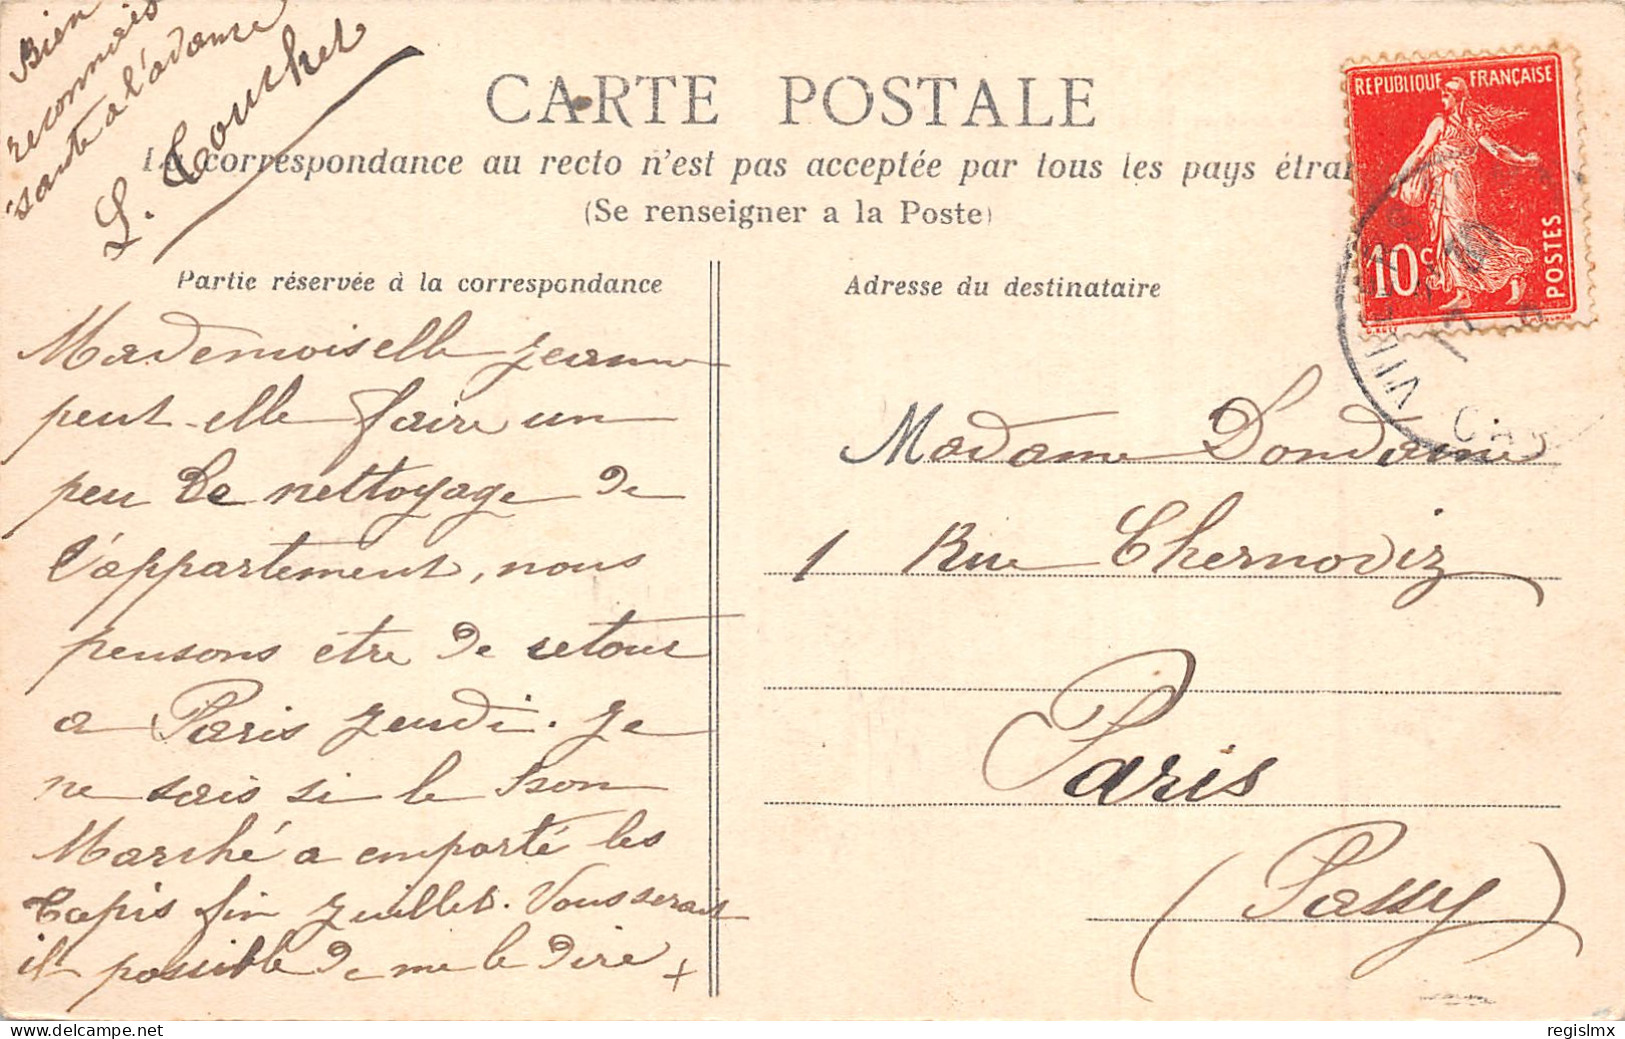 Bien
reconnais
sante a l'adame
L. Touchet
CARTE POSTALE
La correspondance au recto n'est pas acceptée par tous les pays étran
(Se renseigner a la Poste)
Partie réservée à la correspondance
Mademoiselle Jeanne
peut-elle faire un
peu de nettoyage de
l'appartement, nous
pensons etre de retour
a Paris jeudi. Je
ne sais si le Bon
Marché a emporté les
tapis fin juillet. Vous serait
il possible de me le dire +
Adresse du destinataire
REPUBLIQUE FRANÇAISE
10 c
POSTES
Madame Dondaine
1 Rue Chernoviz
Paris
(Passy)
delcampe.net
regislmx